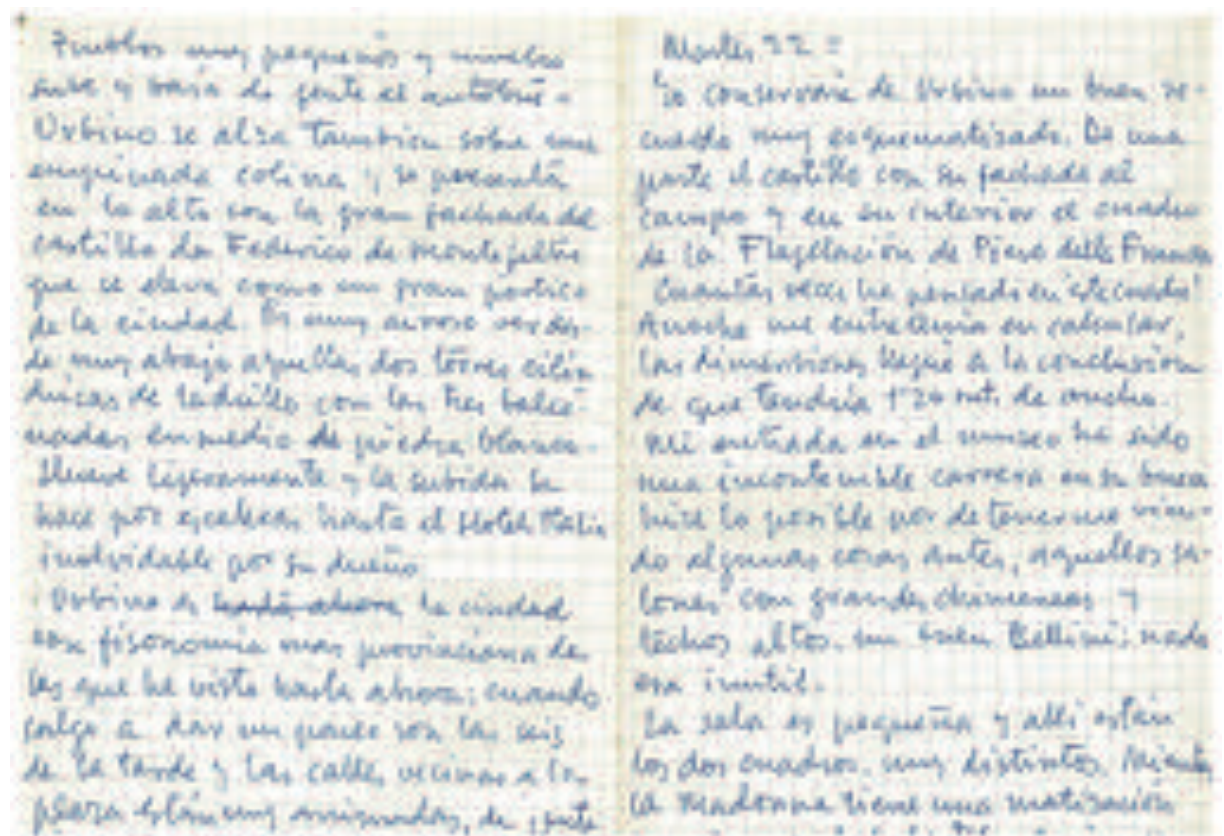 Pueblos muy pequeños y mucho
sube y baja de gente el autobús.
Urbino se alza tambien sobre una
empinada colina y se presenta
en lo alto con la gran fachada del
castillo de Federico de Montefeltro
que se eleva como un gran portico
de la ciudad. Es muy airoso ver des-
de muy abajo aquellas dos torres cilin
dricas de ladrillo con los tres balco-
nadas en medio de piedra blanca.
Llueve ligeramente y la subida se
hace por escaleras hasta el Hotel Italia
inolvidable por su dueño
Urbino es hasta ahora la ciudad
con fisonomia mas provinciana de
las que he visto hasta ahora; cuando
salgo a dar un paseo son las seis
de la tarde y las calles vecinas a la
plaza están muy animadas, de gente
Martes 22 =
Yo conservaría de Urbino un buen re-
cuerdo muy esquematizado. De una
parte el castillo con su fachada al
campo y en su interior el cuadro
de la Flagelación de Piero della Francesca
Cuantas veces he pensado en este cuadro!
Anoche me entretenia en calcular,
las dimensiones llegué a la conclusion
de que tendria 1'20 mt. de ancho.
Mi entrada en el museo ha sido
una incontenible carrera en su busca
hice lo posible por detenerme vien-
do algunas cosas antes, aquellos sa-
lones con grandes chimeneas y
techos altos. un buen Bellini; nada
era inutil.
La sala es pequeña y alli estan
los dos cuadros. muy distintos. Mientras
la Madonna tiene una matización